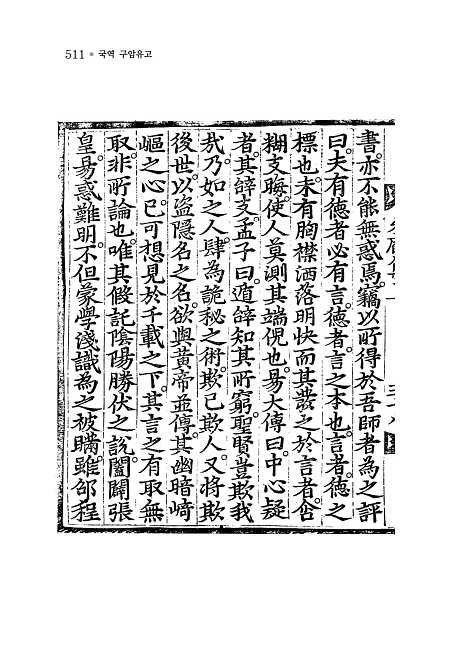 511 ● 국역 구암유고
書。亦不能無惑焉。竊以所得於吾師者為之評
曰。夫有德者必有言。德者。言之本也。言者。德之
標也。未有胸襟洒落明快而其發之於言者。含
糊支晦。使人莫測其端倪也。易大傳曰。中心疑
者。其辭支。孟子曰。遁辭知其所窮。聖賢豈欺我
㢤。乃如之人。肆為詭秘之術。欺己欺人。又將欺
後世。以盜隱名之名。欲與黃帝並傳。其幽暗崎
嶇之心。已可想見於千載之下。其言之有取無
取。非所論也。唯其假託陰陽勝伏之說。闔闢張
皇。易惑難明。不但蒙學淺識為之被瞞。雖邵程